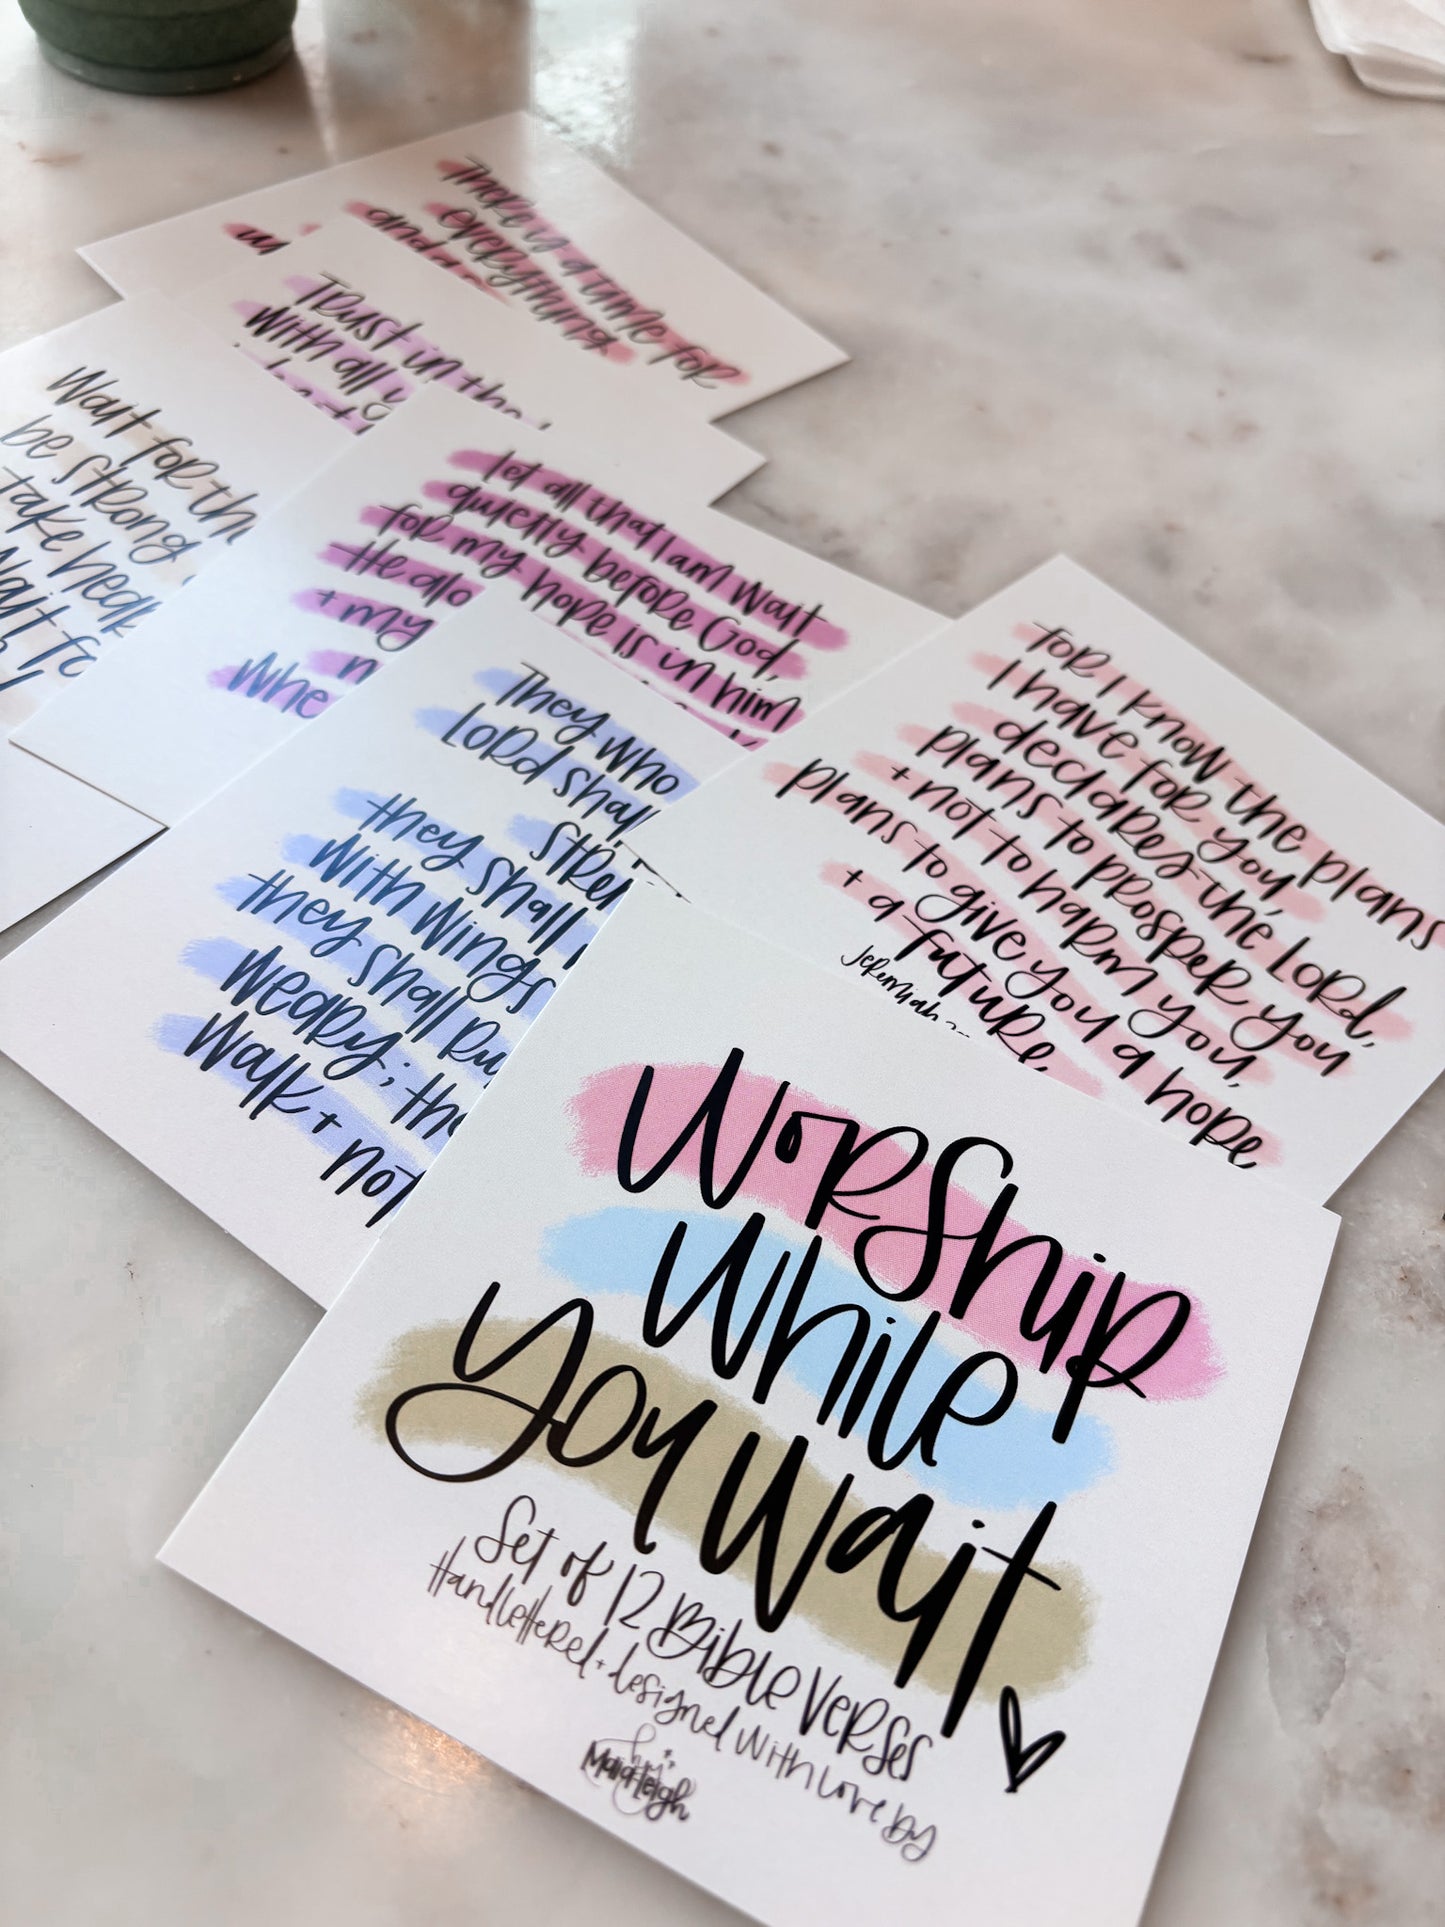 There is a time for
everything,
and a
Trust in the
with all
Wait for th
be strong
take hear
Wait fo
let all that I am wait
quietly before God,
for my hope is in him
He alo
+ my
Whe
They who
Lord shall
stren
they shall
with wings
they shall ru
weary; the
walk + not
for I know the plans
I have for you,
declares the Lord,
plans to prosper you
+ not to harm you,
plans to give you a hope
+ a future.
Jeremiah
Worship
While
you Wait
Set of 12 Bible Verses
Handlettered + designed with love by
hi,
MariaLeigh